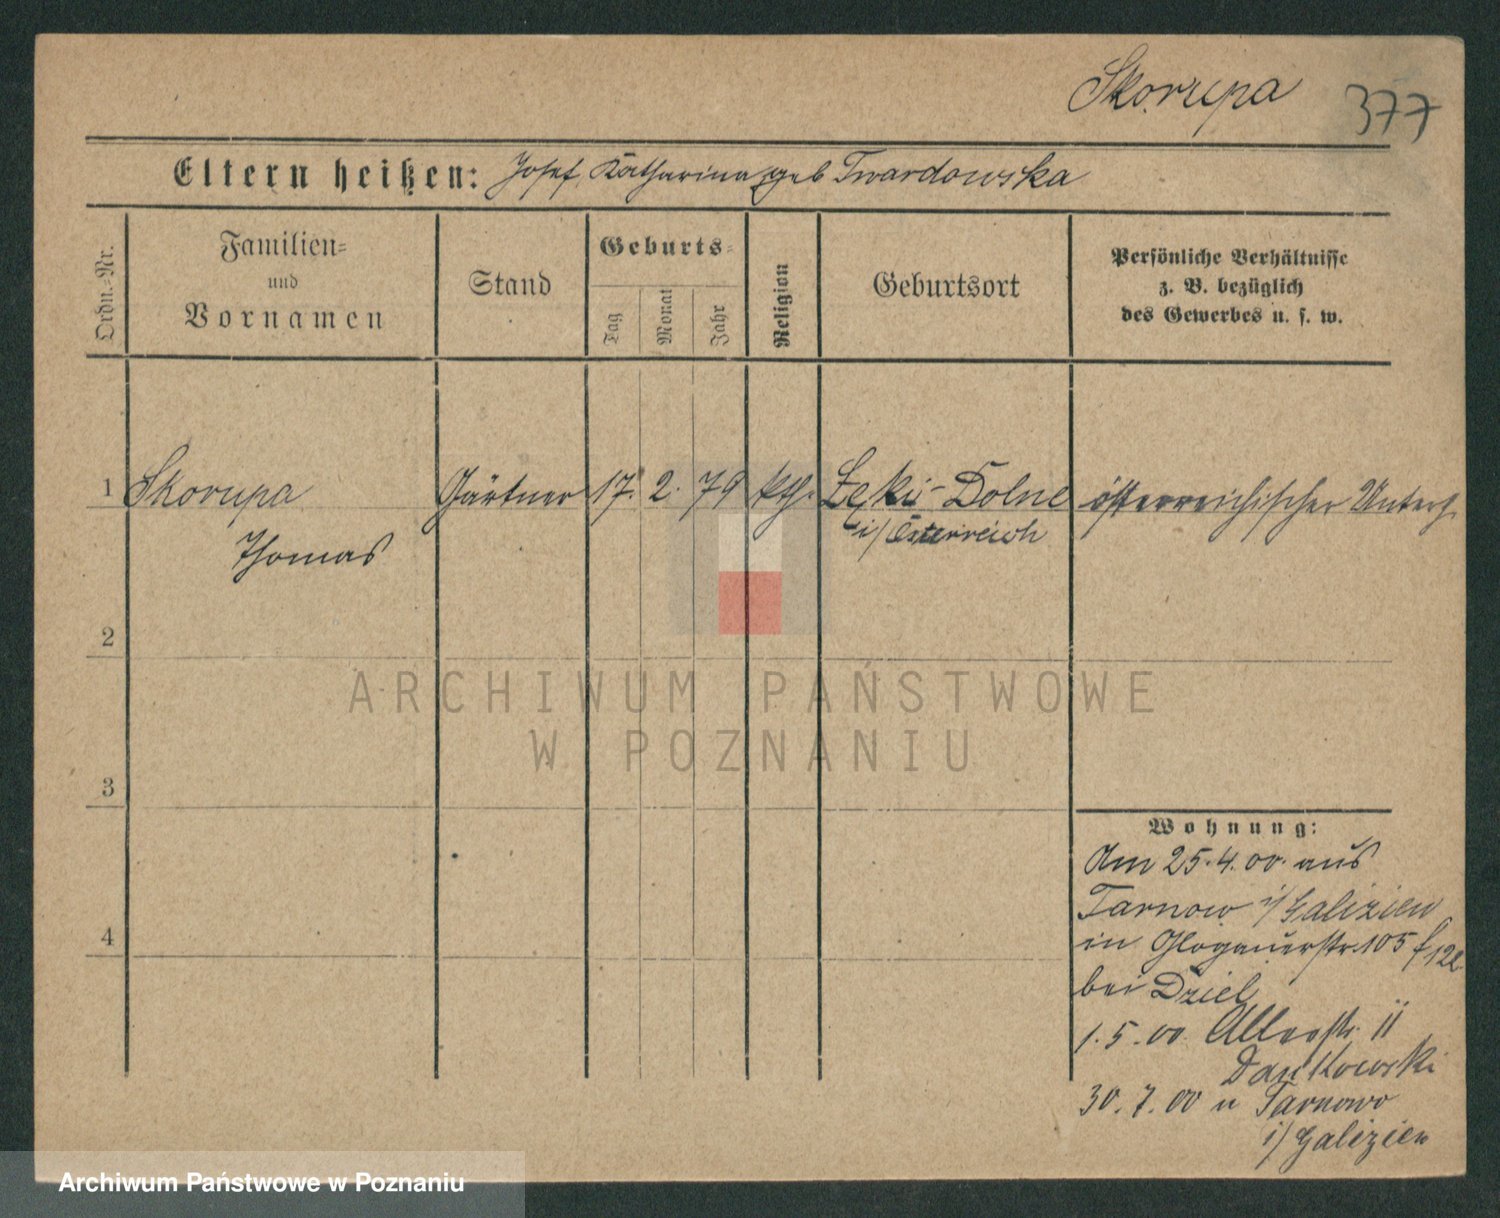 Skorupa
377
Eltern heißen: Josef, Katharina geb Twardowska
Ordn.=Nr.
Familien= und Vornamen
Stand
Geburts=
Tag
Monat
Jahr
Religion
Geburtsort
Persönliche Verhältnisse
z. B. bezüglich
des Gewerbes u. s. w.
1 Skorupa Gärtner 17. 2. 79 kth. Łęki-Dolne österreichischer Unterth.
Thomas i/ Österreich
2
ARCHIWUM PAŃSTWOWE
W POZNANIU
3
Wohnung:
Am 25.4.00. aus
Tarnow i/Galizien
4
in Glogauerstr. 105
bei Dziel
1.5.00 Allerstr. 11
Dankowski
30.7.00 n Tarnowo
i/Galizien
Archiwum Państwowe w Poznaniu